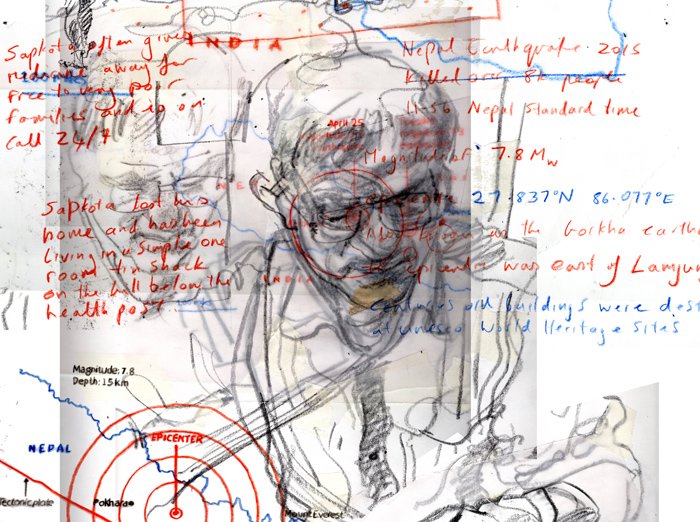 INDIA
Sapkota often gives
medicine away for
free to very poor
families and is on
call 24/7
Nepal Earthquake 2015
killed over 8k people
11:56 Nepal Standard time
April 25
Magnitude of 7.8 Mw
27.837°N 86.077°E
Sapkota lost his
home and has been
living in a simple one
room tin shack
on the hill below the
health post.
as the Gorkha earth
INDIA
epicenter was east of Lamjun
centuries old buildings were dest
at Unesco World Heritage sites
Magnitude: 7.8
Depth: 15km
NEPAL
EPICENTER
Tectonic plate
Pokhara
Mount Everest